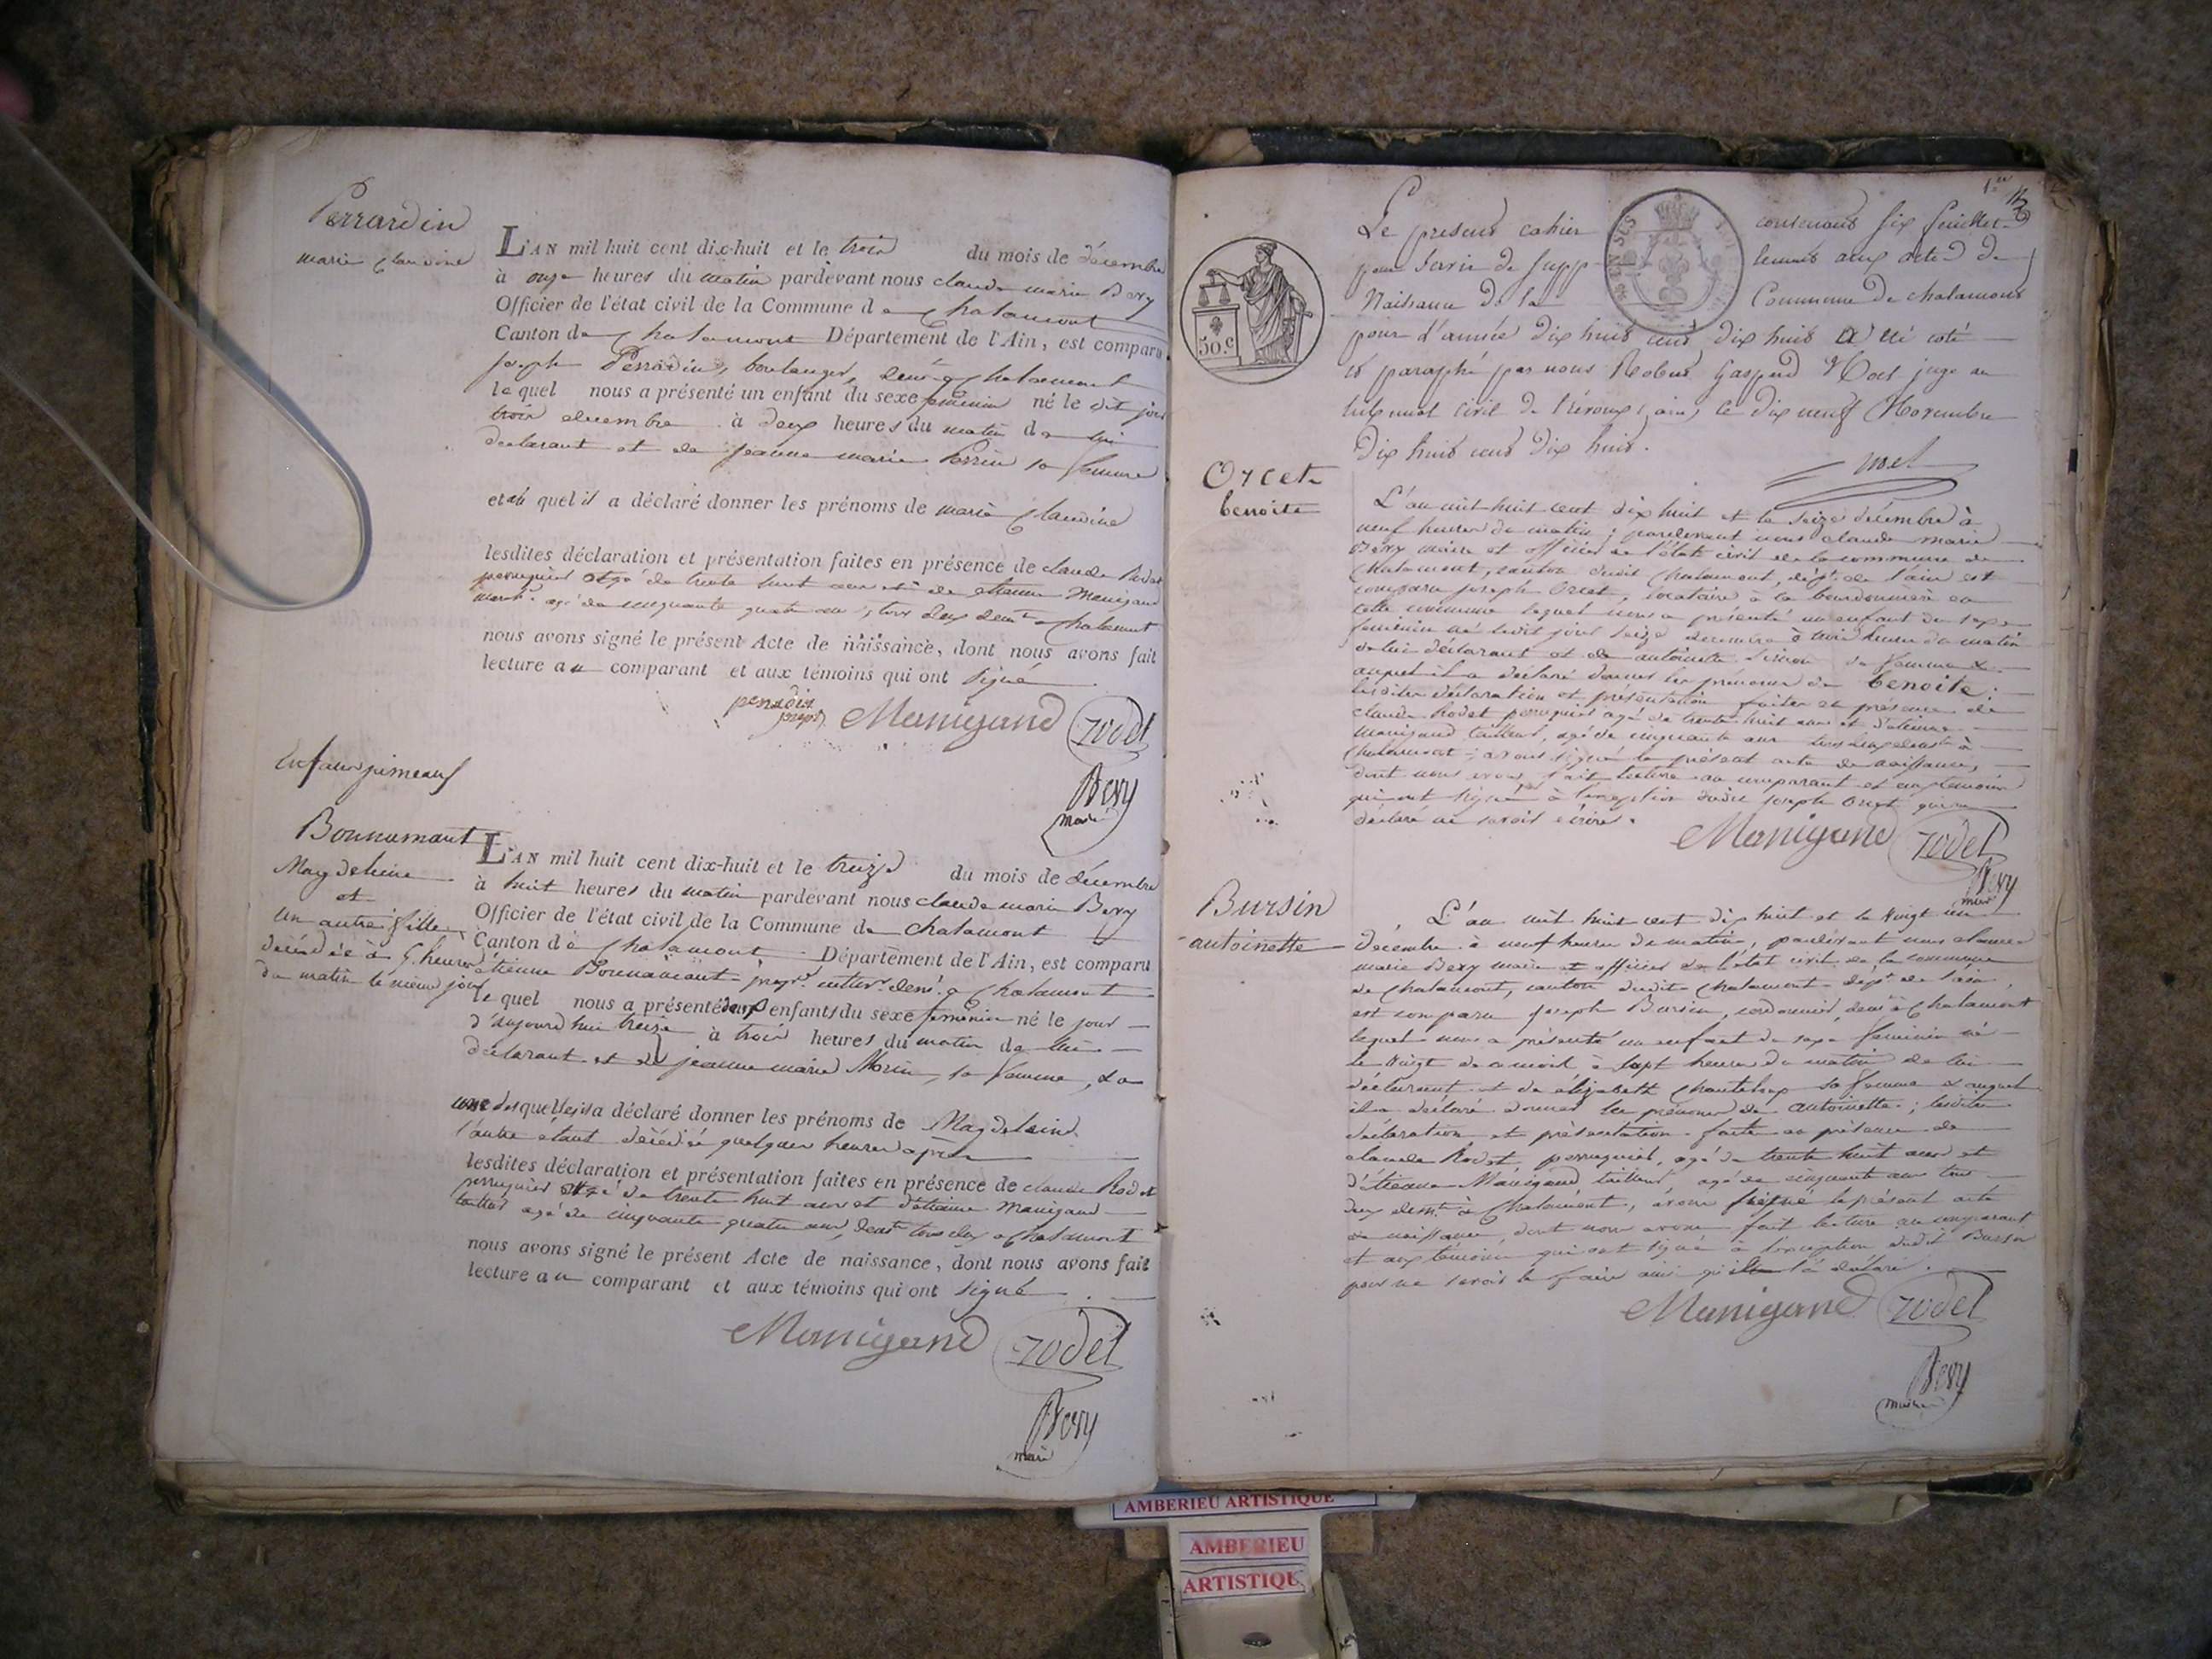 Perrardin
marie Claudine
L'AN mil huit cent dix-huit et le trois du mois de décembre
à onze heures du matin pardevant nous claude marie Bery
Officier de l'état civil de la Commune de Chalamont
Canton de Chalamont Département de l'Ain, est comparu
joseph Perradin, boulanger, demt à Chalamont
lequel nous a présenté un enfant du sexe feminin né le dit jour
trois decembre à deux heures du matin de lui
declarant et de jeanne marie Perrin sa femme
et au quel il a déclaré donner les prénoms de marie Claudine
lesdites déclaration et présentation faites en présence de claude Rodet
perruquier agé de trente huit ans et de etienne Manigand
agé de cinquante quatre ans, tous deux demt à Chalamont
nous avons signé le présent Acte de naissance, dont nous avons fait
lecture au comparant et aux témoins qui ont signé
perradin
joseph Manigand rodet
Bery
maire
Enfans jumeaux
Bonnamant
Magdeleine
et
un autre fille
décédée à 9 heures
du matin le même jour
L'AN mil huit cent dix-huit et le treize du mois de décembre
à huit heures du matin pardevant nous claude marie Bery
Officier de l'état civil de la Commune de chalamont
Canton de Chalamont Département de l'Ain, est comparu
étienne Bonnamant propre cultivr demt à Chalamont
lequel nous a présenté deux enfants du sexe feminin né le jour
d'aujourd'hui treize à trois heures du matin de lui
déclarant et de jeanne marie Morin, sa femme, & a
une desquelles il a déclaré donner les prénoms de Magdeleine
l'autre étant décédée quelques heures après
lesdites déclaration et présentation faites en présence de claude Rodet
perruquier agé de trente huit ans et d'étienne Manigand
tailleur agé de cinquante quatre ans, demt tous deux à Chalamont
nous avons signé le présent Acte de naissance, dont nous avons fait
lecture au comparant et aux témoins qui ont signé
Manigand rodet
Bery
maire
1er
Le present cahier contenant six feuillets
pour servir de supp
Naissance de la Commune de chalamont
pour l'année dix huit cent dix huit a été coté
et paraphé par nous Gaspard juge au
tribunal civil de Trévoux, ain, le dix neuf Novembre
Dix huit cent dix huit.
50.c
Orcet
benoite
L'an mil huit cent dix huit et le seize décembre à
neuf heures du matin; pardevant nous claude marie
Bery maire et officier de l'état civil de la commune de
Chalamont, canton dudit Chalamont, dépt de l'ain est
comparu joseph Orcet, locataire à la bourdonnière en
cette commune lequel nous a présenté un enfant du sexe
feminin né ledit jour seize decembre à trois heures du matin
de lui déclarant et de antoinette sa femme &
auquel il a déclaré donner les prénoms de benoite;
lesdites déclaration et présentation faites en présence de
claude Rodet perruquier agé de trente huit ans et d'etienne
Manigand tailleur, agé de cinquante ans tous deux demt à
Chalamont; avons signé le présent acte de naissance,
dont nous avons fait lecture au comparant et aux témoins
qui ont signé à l'exception dudit joseph Orcet qui a
déclaré ne savoir écrire.
Manigand rodet
Bery
maire
Bursin
antoinette
L'an mil huit cent dix huit et le vingt un
décembre à neuf heures du matin, pardevant nous claude
marie Bery maire et officier de l'état civil de la commune
de Chalamont, canton dudit Chalamont dépt de l'ain,
est comparu joseph Bursin, cordonnier, demt à Chalamont
lequel nous a présenté un enfant du sexe feminin né
le vingt de ce mois à sept heures du matin de lui
déclarant et de élizabeth Chanteloup sa femme & auquel
il a déclaré donner les prénoms de antoinette; lesdites
déclaration et présentation faites en présence de
claude Rodet, perruquier, agé de trente huit ans et
d'étienne Manigand tailleur, agé de cinquante ans tous
deux demt à Chalamont, avons signé le présent acte
de naissance, dont nous avons fait lecture au comparant
et aux témoins qui ont signé à l'exception dudit Bursin
pour ne savoir le faire ainsi qu'il l'a déclaré.
Manigand rodet
Bery
maire
AMBERIEU ARTISTIQUE
AMBERIEU
ARTISTIQU